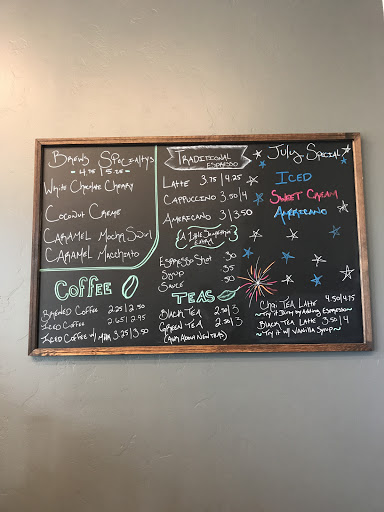 Brew's Specialty's
- 4.75 | 5.25 -
White Chocolate Cherry
Coconut Creme
Caramel Mocha Swirl
Caramel Macchiato
Coffee
Brewed Coffee 2.25 | 2.50
Iced Coffee 2.65 | 2.95
Iced Coffee w/ 3.25 | 3.50
Traditional
Espresso
Latte 3.75 | 4.25
Cappuccino 3.50 | 4
Americano 3 | 3.50
A little Something
Extra
Espresso Shot .50
Syrup .55
Sauce .50
Teas
Black Tea 2.50 | 3
Green Tea 2.50 | 3
(Ask About New Teas)
July Special
Iced
Sweet Cream
Americano
Chai Tea Latte 4.50 | 4.75
~ Try it Dirty by Adding Espresso ~
Black Tea Latte 3.50 | 4
~ Try it w/ Vanilla Syrup ~